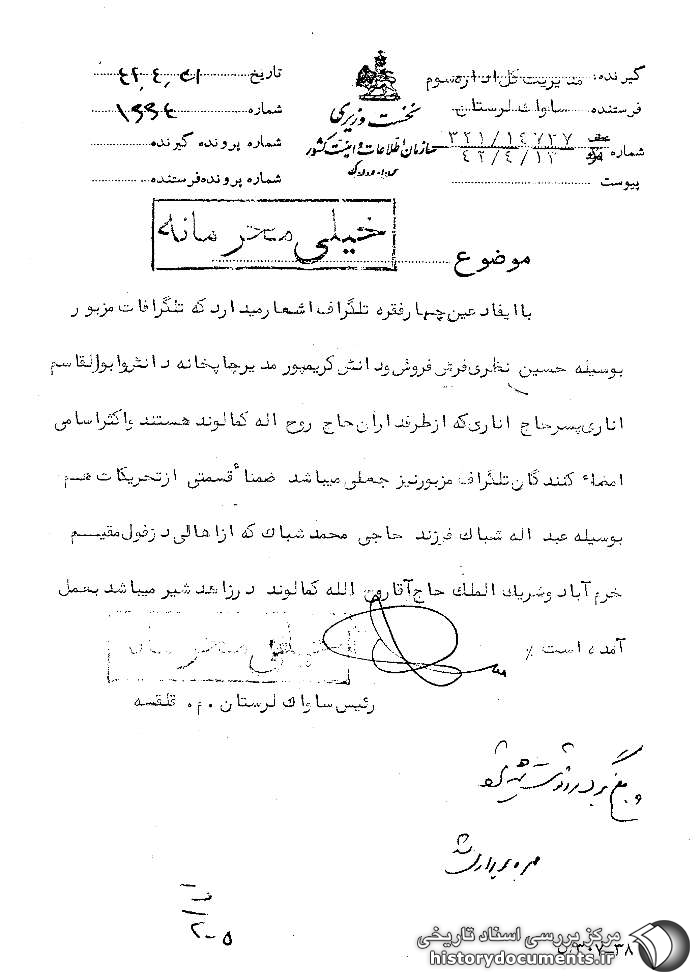 گیرنده: مدیریت کل اداره سوم
فرستنده ساواک لرستان
شماره ۳۲۱/۱۴۷۲۷
۴۲/۴/۱۳
پیوست
نخست وزیری
سازمان اطلاعات و امنیت کشور
س.ا.و.ا.ک
تاریخ
شماره
شماره پرونده گیرنده
شماره پرونده فرستنده
خیلی محرمانه
موضوع
با ایفاد عین چهار فقره تلگراف اشعار میدارد که تلگرافات مزبور
بوسیله حسین نظری فرش فروش و دانش کریمپور مدیر چاپخانه دانش و ابوالقاسم
اناری پسر حاج اناری که از طرفداران حاج روح اله کمالوند هستند و اکثر اسامی
امضاء کنندگان تلگراف مزبور نیز جعلی میباشد ضمنا قسمتی از تحریکات هم
بوسیله عبد اله شباک فرزند حاجی محمد شباک که از اهالی دزفول مقیم
خرم آباد و شریک الملک حاج آقا روح الله کمالوند در زاهد شیر میباشد بعمل
آمده است /
خیلی محرمانه
رئیس ساواک لرستان . م. قلقسه
مرکز بررسی اسناد تاریخی
historydocuments.ir